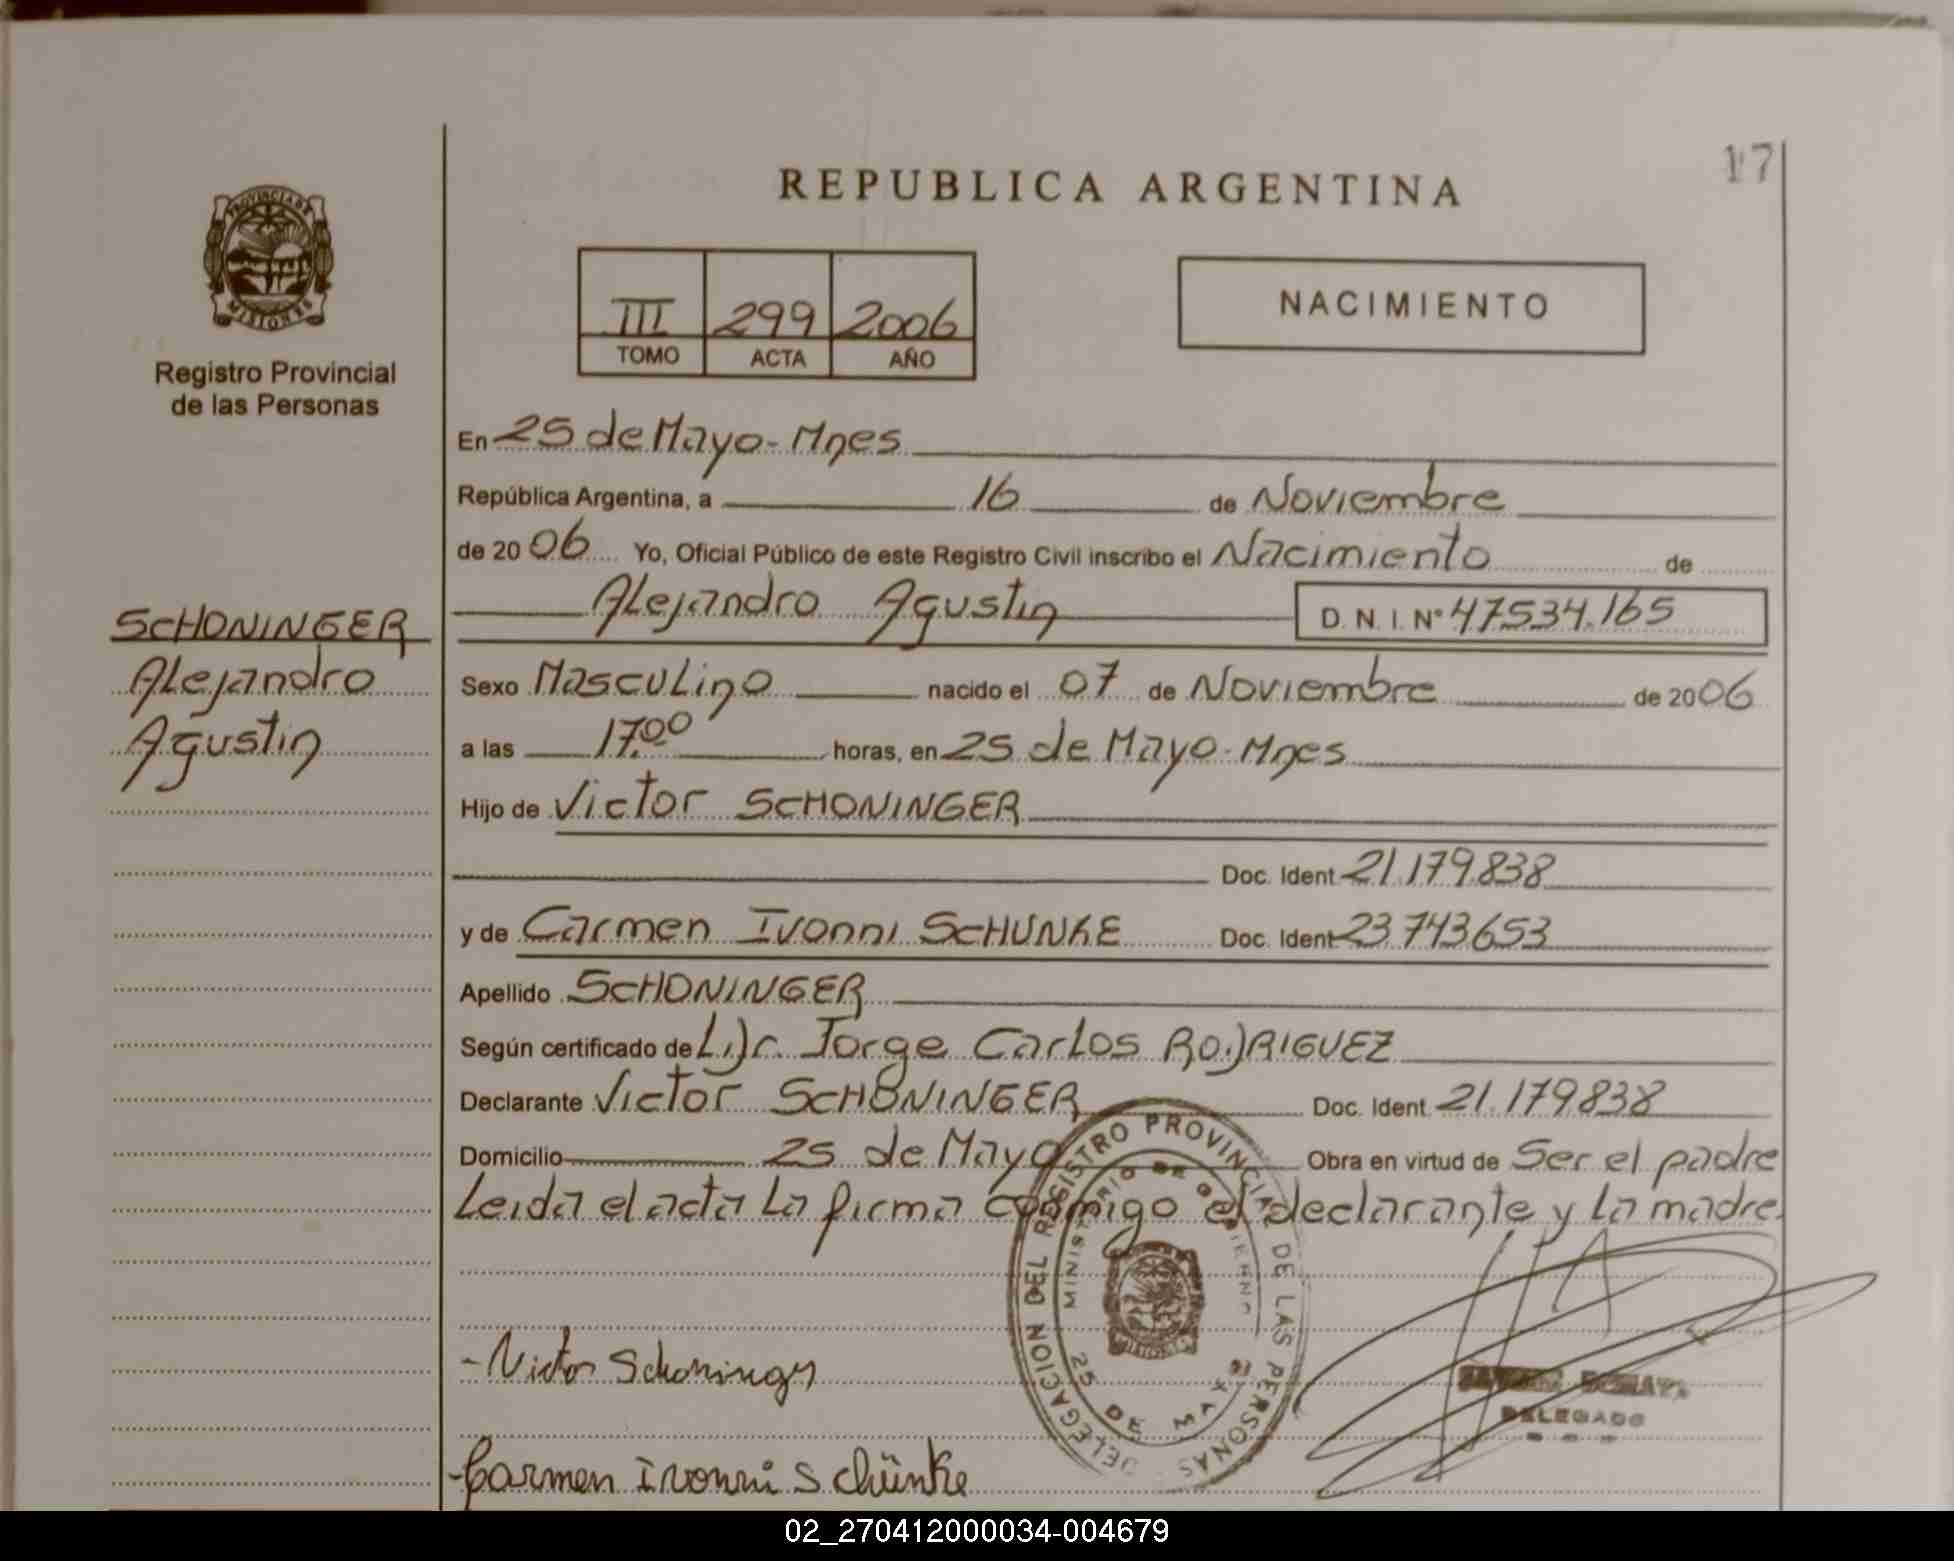 17
REPUBLICA ARGENTINA
PROVINCIA DE
MISIONES
Registro Provincial
de las Personas
III 299 2006
TOMO ACTA AÑO
NACIMIENTO
En 25 de Mayo - Mnes
República Argentina, a 16 de Noviembre
de 2006 Yo, Oficial Público de este Registro Civil inscribo el Nacimiento de
Alejandro Agustin D. N. I. Nº 47534.165
SCHONINGER
Alejandro
Agustin
Sexo Masculino nacido el 07 de Noviembre de 2006
a las 17.00 horas, en 25 de Mayo - Mnes
Hijo de Victor SCHONINGER
Doc. Ident 21.179.838
y de Carmen Ivonni SCHUNKE Doc. Ident 23.743653
Apellido SCHONINGER
Según certificado de Dr. Jorge Carlos RODRIGUEZ
Declarante Victor SCHONINGER Doc. Ident 21.179838
Domicilio 25 de Mayo Obra en virtud de Ser el padre
Leida el acta La firma conmigo el declarante y La madre.
DELEGACION DEL REGISTRO PROVINCIAL DE LAS PERSONAS
MINISTERIO DE GOBIERNO
25 DE MAYO
- Victor Schoninger
DELEGADO
- Carmen Ivonni Schünke
02_270412000034-004679